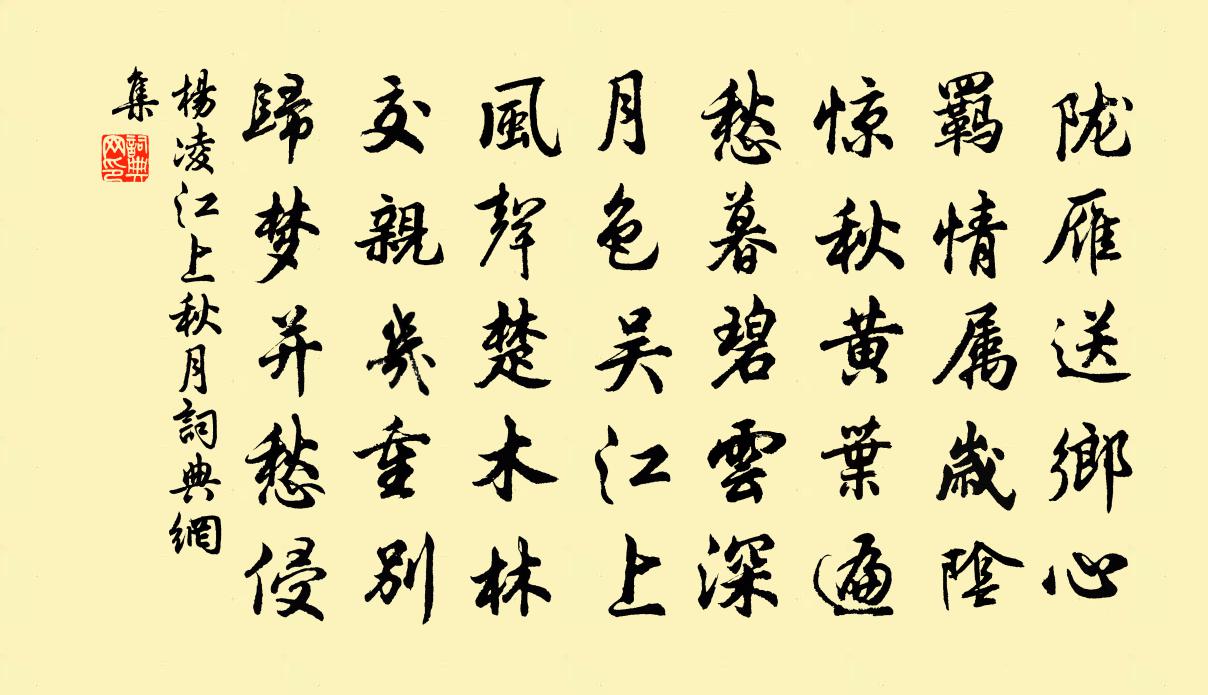 陇雁送鄉心
羈情属歲陰
惊秋黄葉遍
愁暮碧雲深
月色吴江上
風聲楚木林
交親幾重別
歸梦并愁侵
楊凌江上秋月詞典網
集
詞典
网印